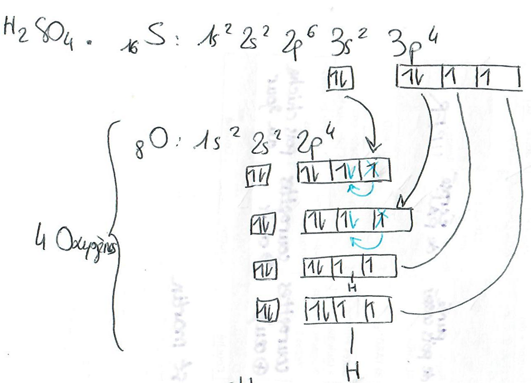 H₂SO₄. ₁₆S: 1s² 2s² 2p⁶ 3s² 3p⁴
₈O: 1s² 2s² 2p⁴
4 Oxygènes
H
H